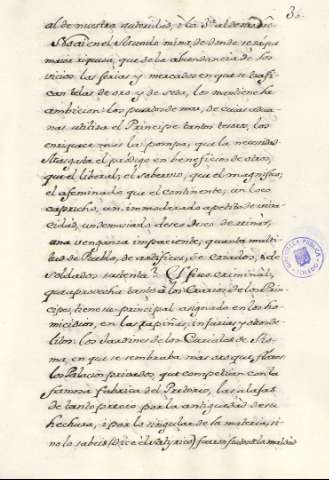 3
al de nuestra autoridad, i la
si en el segundo mina, de donde se
maior riqueza, que de la abundancia de los
vicios las ferias y mercados en que se trafi-
can telas de oro y de seda, los mantiene la
ambicion: los puertos de mar, de cuias adua-
nas utiliza el Principe tantos tesoros, los
enriquece mas la pompa, que la necesidad.
Mas gasta el prodigo en beneficio de otros,
que el liberal; el sobervio, que el magnifico;
el afeminado que el continente; un loco
capricho, un immoderado apetito de viva-
cidad, un demasiado deseo de reinar,
una venganza impaciente, quanta multi-
tud de Pueblo, de artifices, de criados, i de
soldados sustenta? El fisco criminal,
que aprovecha tanto à los Erarios de los Prin-
cipes, tiene su principal asignado en los ho-
micidios, en las rapiñas, injurias y
los Jardines de los Curiales de Ro-
ma, en que se sembraba mas oro que flores
los Palacios privados, que competian con la
famosa fabrica del Pretorio, las alajas
de tanto precio por la antiguedad de su
hechura, i por lo singular de la materia, si
no lo sabeis (dice el Satyrico) fueron
BIBLIOTECA PUBLICA
TOLEDO